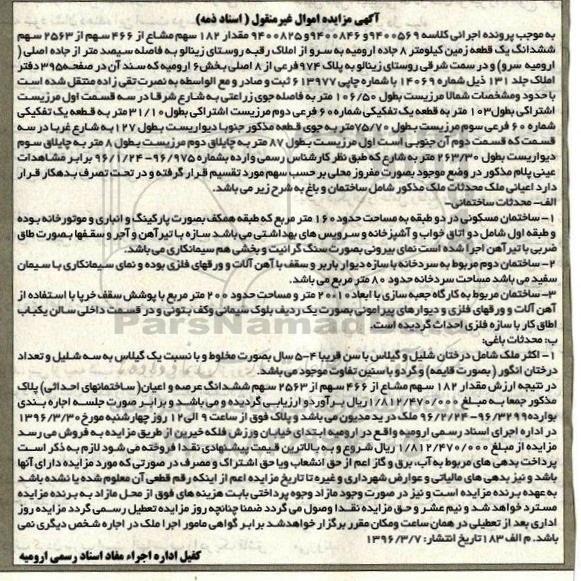 آگهی مزایده اموال غیرمنقول ( اسناد ذمه)
به موجب پرونده اجرائی کلاسه ۹۴۰۰۵۶۹ و۹۴۰۰۸۴۶ و ۹۴۰۰۸۲۵ مقدار ۱۸۲ سهم مشاع از ۴۶۶ سهم از ۲۵۶۳ سهم
ششدانگ یک قطعه زمین کیلومتر ۸ جاده ارومیه به سرو از املاک رقبه روستای زینالو به فاصله سیصد متر از جاده اصلی (
ارومیه سرو) و در سمت شرقی روستای زینالو به پلاک ۹۷۴ فرعی از ۸ اصلی بخش۶ ارومیه که سند آن در صفحه۳۹۵ دفتر
املاک جلد ۱۳۱ ذیل شماره ۱۴۰۶۹ با شماره چاپی ۶۱۳۹۷۷ ثبت و صادر و مع الواسطه به نصرت تقی زاده منتقل شده است
با حدود ومشخصات شمالا مرزیست بطول ۱۰۶/۵۰ متر به فاصله جوی زراعتی به شارع شرقا در سه قسمت اول مرزیست
اشتراکی بطول۱۰۳ متر به قطعه یک تفکیکی شماره ۶۰ فرعی دوم مرزیست اشتراکی بطول ۳۱/۱۰متر به قطعه یک تفکیکی
شماره ۶۰ فرعی سوم مرزیست بطول ۷۵/۷۰متر به جوی قطعه مذکور جنوبا دیواریست بطول ۱۲۷ به شارع غربا در سه
قسمت که قسمت دوم آن جنوبی است اول مرزیست بطول ۸۷ متر به چایلاق دوم مرزیست بطول ۸ متر به چایلاق سوم
دیواریست بطول ۲۶۳/۳۰ متر به شارع که طبق نظر کارشناس رسمی وارده بشماره ۹۶/۹۷۵-۹۶/۱/۲۴ برابر مشاهدات
عینی پلام مذکور در وضع موجود بصورت مفروز محلی بر حسب سهم مورد تقسیم قرار گرفته و در تحت تصرف بدهکار قرار
دارد اعیانی ملک محدثات ملک مذکور شامل ساختمان و باغ به شرح زیر می باشد.
الف- محدثات ساختمانی-
۱- ساختمان مسکونی در دو طبقه به مساحت حدود ۱۶۰ متر مربع که طبقه همکف بصورت پارکینگ و انباری و موتورخانه بوده
و طبقه اول شامل دو اتاق خواب و آشپزخانه و سرویس های بهداشتی می باشد سازه با تیرآهن و آجر و سقفها بصورت طاق
ضربی با تیرآهن اجرا شده است نمای بیرونی بصورت سنگ گرانیت و بخشی هم سیمانکاری می باشد.
۲- ساختمان دوم مربوط به سردخانه با سازه دیوار باربر و سقف با آهن آلات و ورقهای فلزی بوده و نمای سیمانکاری با سیمان
سفید می باشد مساحت سردخانه حدود ۸۰ متر مربع می باشد.
۳- ساختمان مربوط به کارگاه جعبه سازی با ابعاد ۱۰*۲۰ متر و مساحت حدود ۲۰۰ متر مربع با پوشش سقف خرپا با استفاده از
آهن آلات و ورقهای فلزی و دیوارهای پیرامونی بصورت یک ردیف بلوک سیمانی وکف بتونی و در قسمت داخلی سالن یکباب
اطاق کار با سازه فلزی احداث گردیده است.
ب: محدثات باغی:
۱- اکثر ملک شامل درختان شلیل و گیلاس با سن قریبا ۴-۵ سال بصورت مخلوط و با نسبت یک گیلاس به سه شلیل و تعداد
درختان انگور ( بصورت قایمه) و گردو با سنین تفاوت موجود می باشد.
در نتیجه ارزش مقدار ۱۸۲ سهم مشاع از ۴۶۶ سهم از ۲۵۶۳ سهم ششدانگ عرصه و اعیان( ساختمانهای احداثی) پلاک
مذکور جمعا به مبلغ ۱/۸۱۲/۴۷۰/۰۰۰ریال برآوردو ارزیابی گردیده و می باشد و برابر صورت جلسه اجاره بندی
بوارده۹۶/۳۲۹۹-۹۶/۲/۲۴ ملک در ید مدیون می باشد و پلاک فوق از ساعت ۹ الی ۱۲ روز چهارشنبه مورخ ۱۳۹۶/۳/۳۰
در اداره اجرای اسناد رسمی ارومیه واقع در ارومیه ابتدای خیابان ورزش فلکه خیرین از طریق مزایده به فروش می رسد
مزایده از مبلغ ۱/۸۱۲/۴۷۰/۰۰۰ ریال شروع و به بالاترین قیمت پیشنهادی نقدا فروخته می شود لازم به ذکر است
پرداخت بدهی های مربوط به آب، برق و گاز اعم از حق انشعاب ویا حق اشتراک و مصرف در صورتی که مورد مزایده دارای آنها
باشد و نیز بدهی های مالیاتی و عوارض شهرداری و غیره تا تاریخ مزایده اعم از اینکه رقم قطعی آن معلوم شده یا نشده باشد
به عهده برنده مزایده است و نیز در صورت وجود مازاد وجوه پرداختی بابت هزینه های فوق از محل مازاد به برنده مزایده
مسترد خواهد شد و نیم عشر و حق مزایده نقدا وصول می گردد ضمنا چنانچه روز مزایده تعطیل رسمی گردد مزایده روز
اداری بعد از تعطیلی در همان ساعت ومکان مقرر برگزار خواهدشد برابر گواهی مامور اجرا ملک در اجاره شخص دیگری نمی
باشد. م الف ۱۸۳ تاریخ انتشار: ۱۳۹۶/۳/۷
کفیل اداره اجراء مفاد اسناد رسمی ارومیه
ParsNamadData